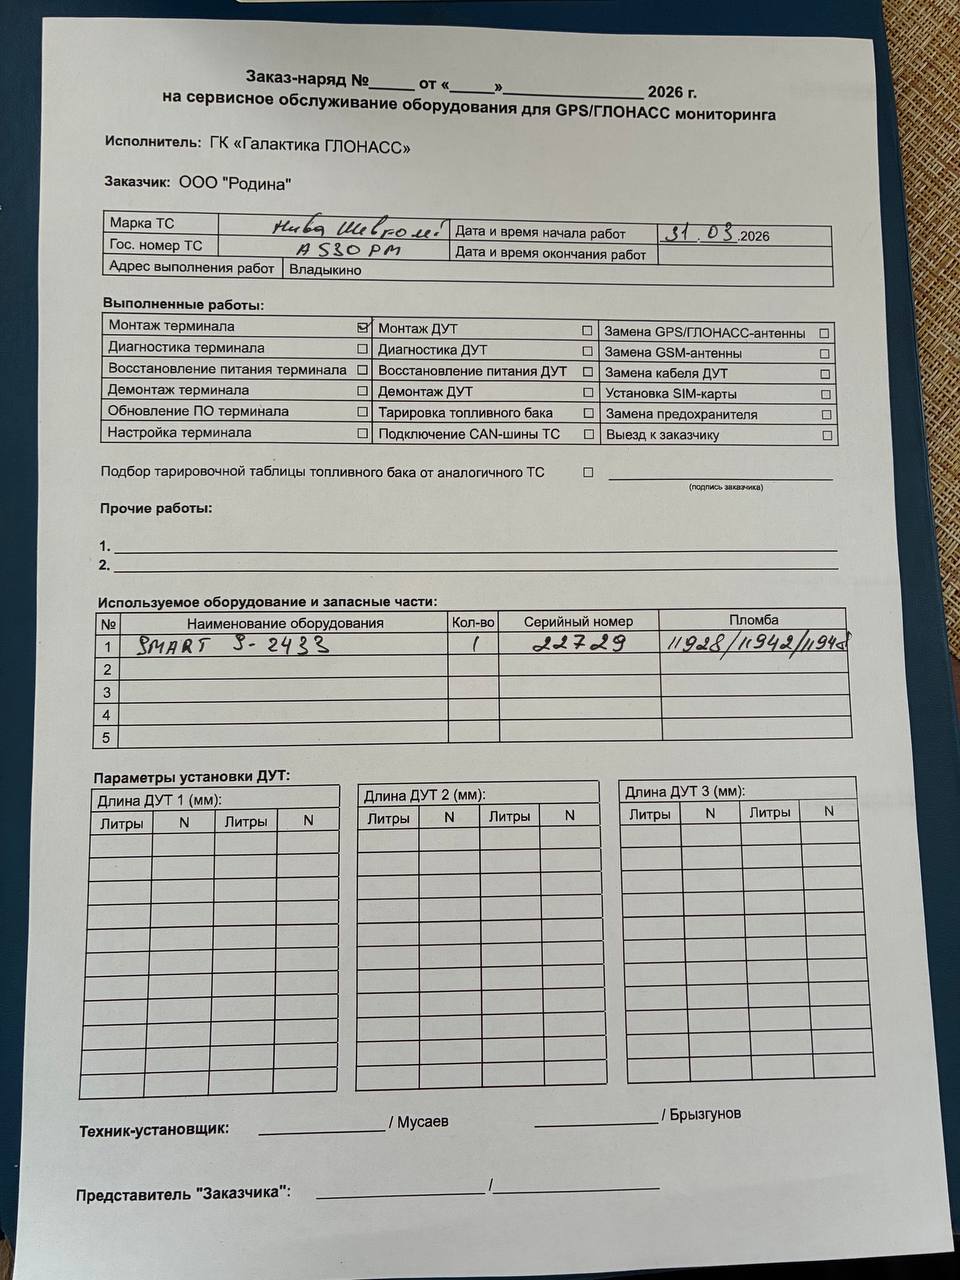 Заказ-наряд №_____ от «_____»________________ 2026 г.
на сервисное обслуживание оборудования для GPS/ГЛОНАСС мониторинга
Исполнитель: ГК «Галактика ГЛОНАСС»
Заказчик: ООО "Родина"
Марка ТС Нива Шевроле Дата и время начала работ 31.03.2026
Гос. номер ТС А530РМ Дата и время окончания работ
Адрес выполнения работ Владыкино
Выполненные работы:
Монтаж терминала ☑ Монтаж ДУТ ☐ Замена GPS/ГЛОНАСС-антенны ☐
Диагностика терминала ☐ Диагностика ДУТ ☐ Замена GSM-антенны ☐
Восстановление питания терминала ☐ Восстановление питания ДУТ ☐ Замена кабеля ДУТ ☐
Демонтаж терминала ☐ Демонтаж ДУТ ☐ Установка SIM-карты ☐
Обновление ПО терминала ☐ Тарировка топливного бака ☐ Замена предохранителя ☐
Настройка терминала ☐ Подключение CAN-шины ТС ☐ Выезд к заказчику ☐
Подбор тарировочной таблицы топливного бака от аналогичного ТС ☐
(подпись заказчика)
Прочие работы:
1.
2.
Используемое оборудование и запасные части:
№ Наименование оборудования Кол-во Серийный номер Пломба
1 SMART S-2433 1 22729 11928/11942/11948
2
3
4
5
Параметры установки ДУТ:
Длина ДУТ 1 (мм): Длина ДУТ 2 (мм): Длина ДУТ 3 (мм):
Литры N Литры N Литры N Литры N Литры N Литры N
Техник-установщик: / Мусаев / Брызгунов
Представитель "Заказчика": /